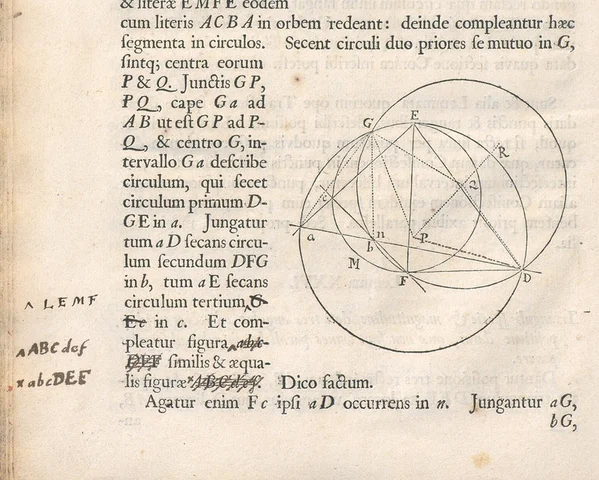 & literæ E M F E eodem
cum literis A C B A in orbem redeant: deinde compleantur hæc
ſegmenta in circulos. Secent circuli duo priores ſe mutuo in G,
ſintq; centra eorum
P & Q. Junctis G P,
P Q, cape G a ad
A B ut eſt G P ad P-
Q, & centro G, in-
tervallo G a deſcribe
circulum, qui ſecet
circulum primum D-
G E in a. Jungatur
tum a D ſecans circu-
lum ſecundum D F G
in b, tum a E ſecans
circulum tertium,
in c. Et com-
pleatur figura
ſimilis & æqua-
lis figuræ Dico factum.
Agatur enim F c ipſi a D occurrens in n. Jungantur a G,
b G,
G
E
R
c
Q
a
b
n
P
M
F
D
^ L E M F
^ ABC def
x abc DEF